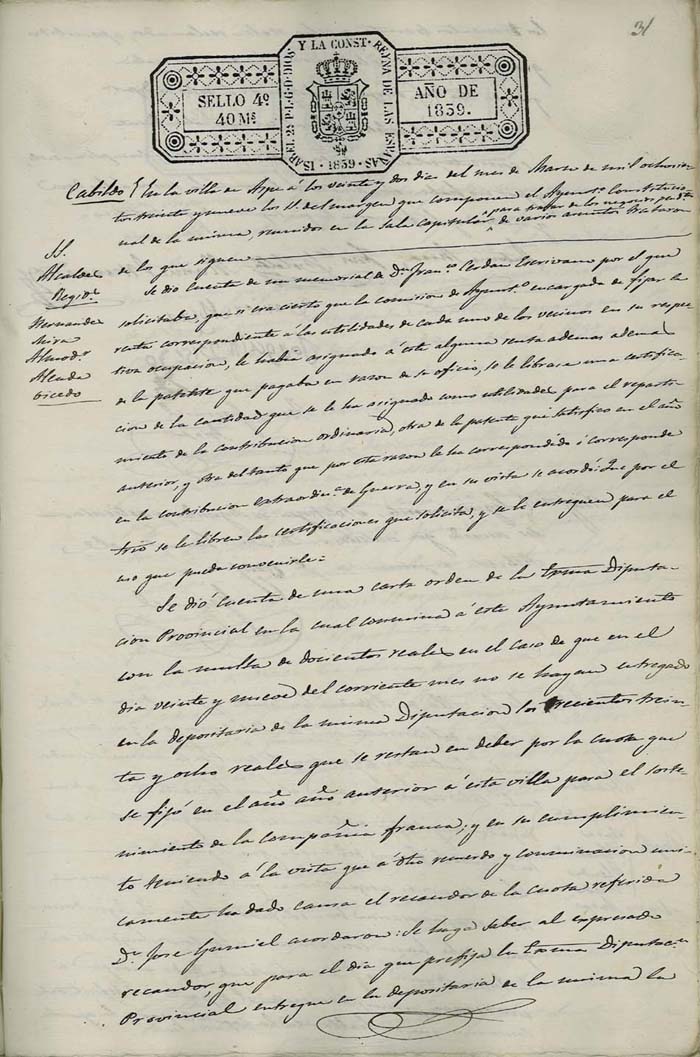 31
ISABEL 2ª P.L.G.D.DIOS Y LA CONST. REYNA DE LAS ESPAÑAS
SELLO 4º
40 Ms
AÑO DE
1839.
1839
Cabildo En la villa de Aspe á los veinte y dos dias del mes de Marzo de mil ochocien
tos treinta y nueve los SS. del margen que componen el Ayuntº Constitucio
nal de la misma, reunidos en la Sala Capitular para tratar de los negocios de varios asuntos trataron
de los que siguen
SS.
Alcaldes
Regids
Hernandez
Mira
Almodr
Alcuda
Vicedo
Se dio cuenta de un memorial de Dn Franco Cerdan Escrivano por el que
solicitaba, que si era cierto que la comision de Ayuntº encargada de fijar la
renta correspondiente á las utilidades de cada uno de los vecinos en su respec
tiva ocupacion, le habia asignado á este alguna renta ademas ademas
de la patente que pagaba en razon de su oficio, se le librase una certifica
cion de la cantidad que se le ha asignado como utilidades para el reparti
miento de la contribucion ordinaria, otra de la patente que satisfizo en el año
anterior, y otra del tanto que por esta razon le ha correspondido ó corresponde
en la contribucion extraordinª de Guerra, y en su vista se acordó: Que por el
Srio se le libren las certificaciones que solicita, y se le entreguen para el
uso que pueda convenirle =
Se dió cuenta de una carta orden de la Exma Diputa
cion Provincial en la cual conmina á este Ayuntamiento
con la multa de docientos reales en el caso de que en el
dia veinte y nueve del corriente mes no se hayan entregado
en la depositaria de la misma Diputacion los trecientos trein
ta y ocho reales que se restan en deber por la cuota que
se fijó en el año año anterior á esta villa para el soste
nimiento de la compañia franca; y en su cumplimien
to teniendo á la vista que á dho recuerdo y conminacion uni
camente ha dado causa el recaudor de la cuota referida
Dn Jose Gumiel acordaron: Se haga saber al expresado
recaudor, que para el dia que prefija la Exma Diputacn
Provincial entregue en la depositaria de la misma la